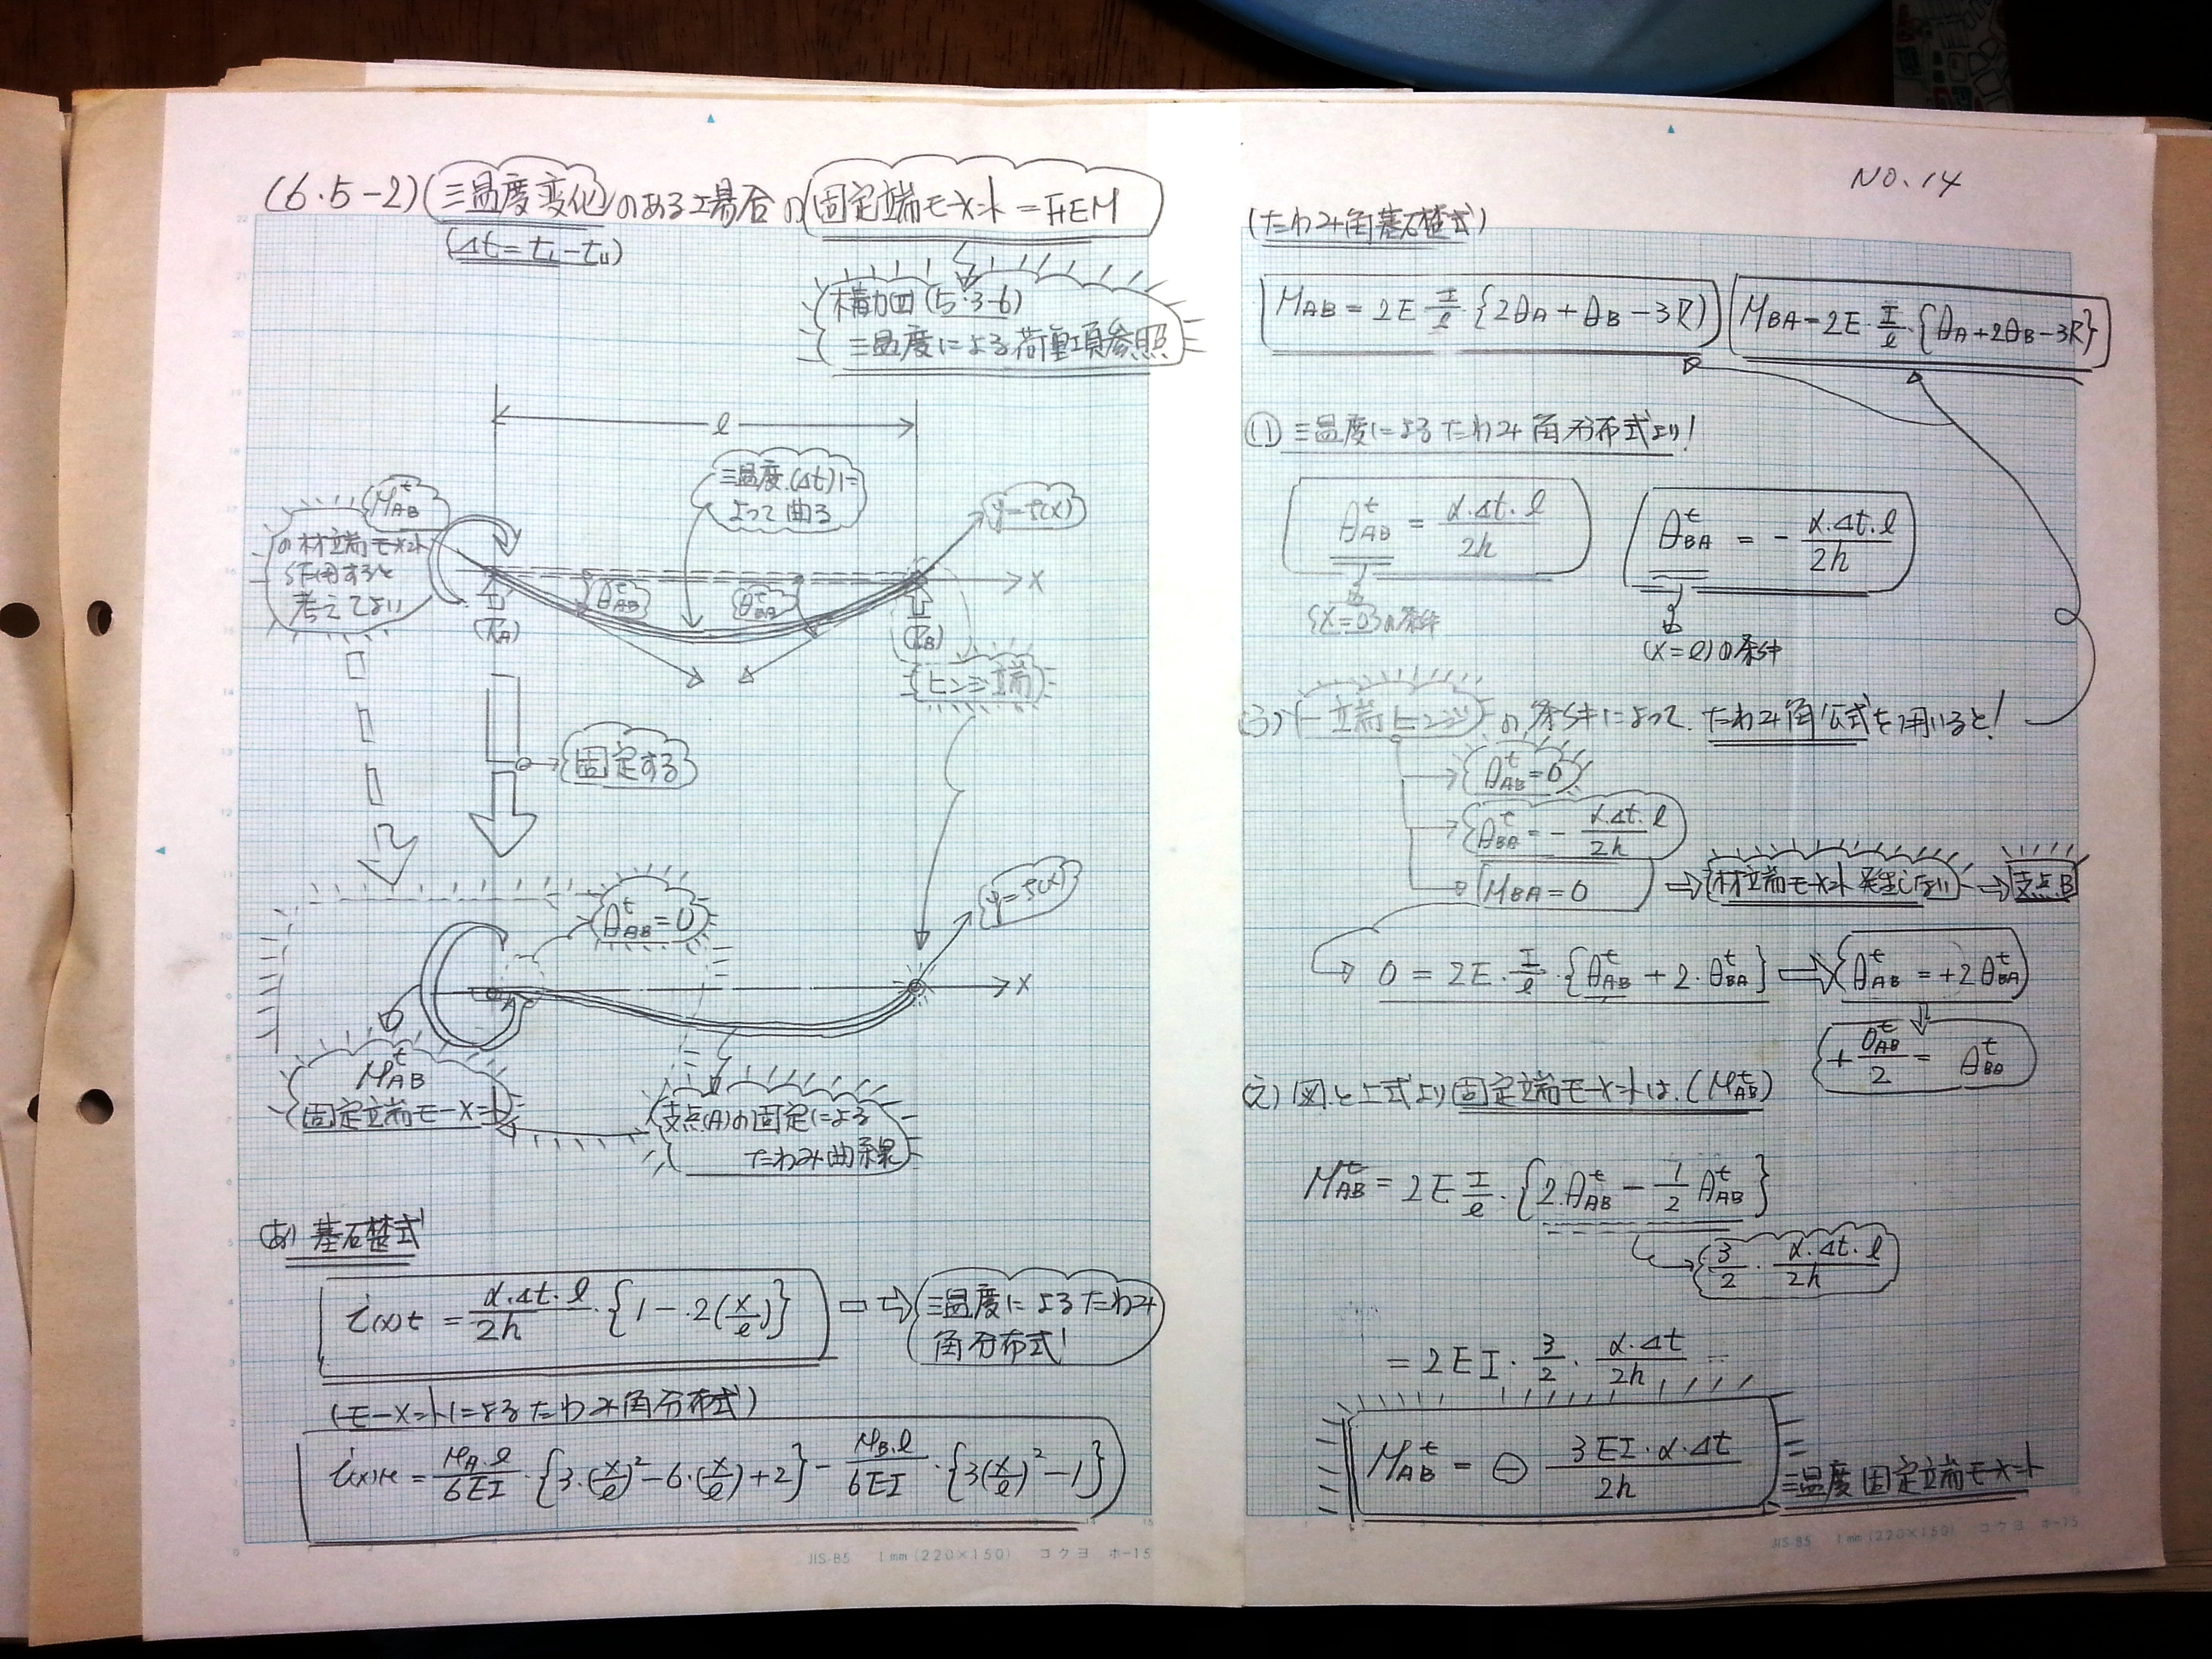 (6.5-2) 温度変化のある場合の固定端モーメント=FEM
(Δt=tL-tu)
構力四(5.3-6)
温度による荷重項参照
l
温度(Δt)に
よって曲る
y=f(x)
M^t_AB
の材端モーメント
作用すると
考えてよい
θ^t_AB
θ^t_BA
X
(RA)
(RB)
ヒンジ端
固定する
θ^t_AB=0
y=f(x)
X
M^t_AB
固定端モーメント
支点(A)の固定による
たわみ曲線
(あ) 基礎式
i(x)t = α·Δt·l/2h · {1-2(x/l)}
温度によるたわみ
角分布式
(モーメントによるたわみ角分布式)
i(x)M = MA·l/6EI · {3·(x/l)²-6·(x/l)+2} - MB·l/6EI · {3(x/l)²-1}
NO.14
(たわみ角基礎式)
MAB=2E·I/l·{2θA+θB-3R}
MBA=2E·I/l·{θA+2θB-3R}
(い) 温度によるたわみ角分布式より!
θ^t_AB = α·Δt·l/2h
θ^t_BA = - α·Δt·l/2h
(X=0)の条件
(X=l)の条件
(う) 一端ヒンジの条件によって、たわみ角公式を用いると!
θ^t_AB=0
θ^t_BA=- α·Δt·l/2h
MBA=0
材端モーメント発生しない
支点B
0 = 2E·I/l·{θ^t_AB+2·θ^t_BA}
θ^t_AB=+2θ^t_BA
+ θ^t_AB/2 = θ^t_BA
(え) 図と上式より固定端モーメントは、(M^t_AB)
M^t_AB = 2E I/l·{2θ^t_AB - 1/2 θ^t_AB}
3/2 · α·Δt·l/2h
= 2EI · 3/2 · α·Δt/2h
M^t_AB = ⊖ 3EI·α·Δt/2h
温度固定端モーメント
JIS-B5 1mm(220×150) コクヨ ホ-15
JIS-B5 1mm(220×150) コクヨ ホ-15